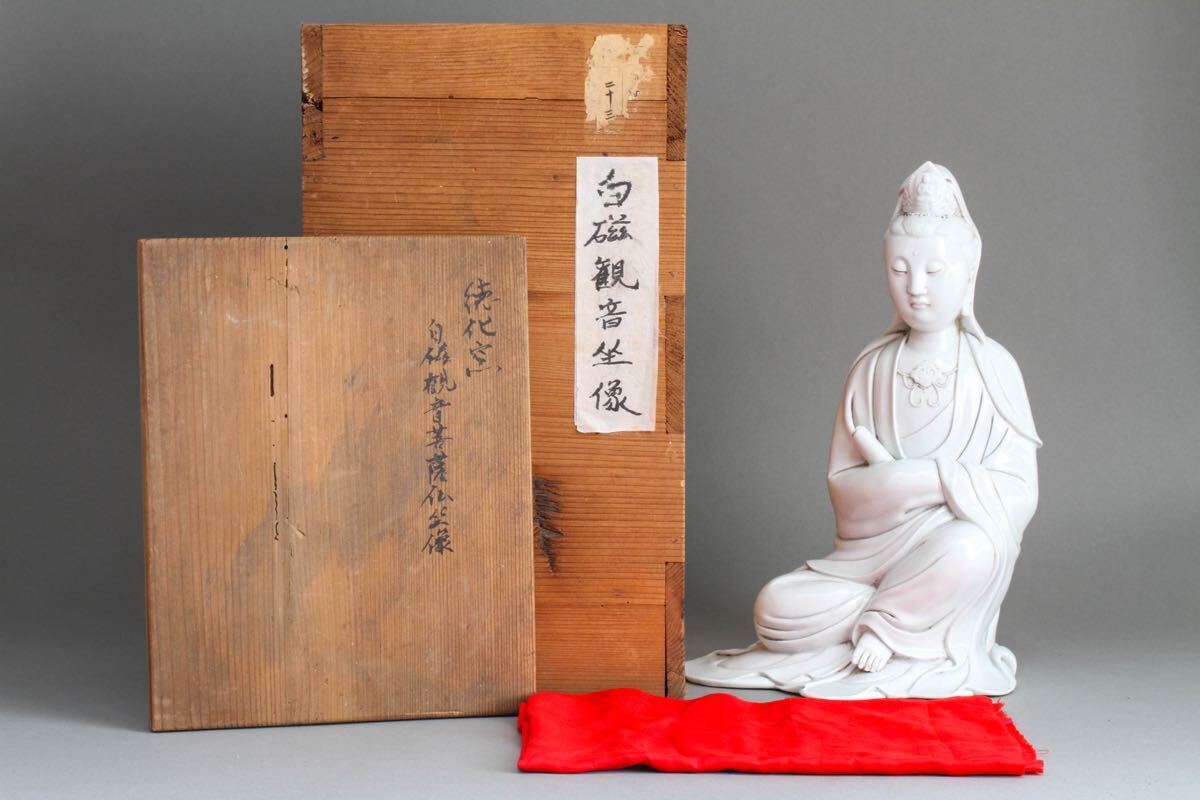 二十三
白磁観音坐像
德化窯
白磁観音菩薩仏坐像